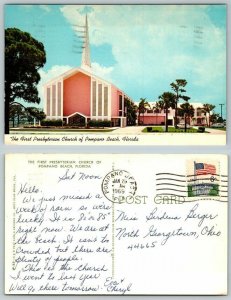 The First Presbyterian Church of Pompano Beach, Florida
THE FIRST PRESBYTERIAN CHURCH OF
POMPANO BEACH, FLORIDA
Sat Noon
Hello,
We just missed a
week's rain so were
lucky. It is 80 or 85°
right now. We are at
the beach. It isn't to
crowded but there are
plenty of people.
This is the church
we went to last year
Will go there tomorrow.
Cheryl
POMPANO
JAN
1969
POST CARD
Miss Berdena Berger
North Georgetown, Ohio
44665